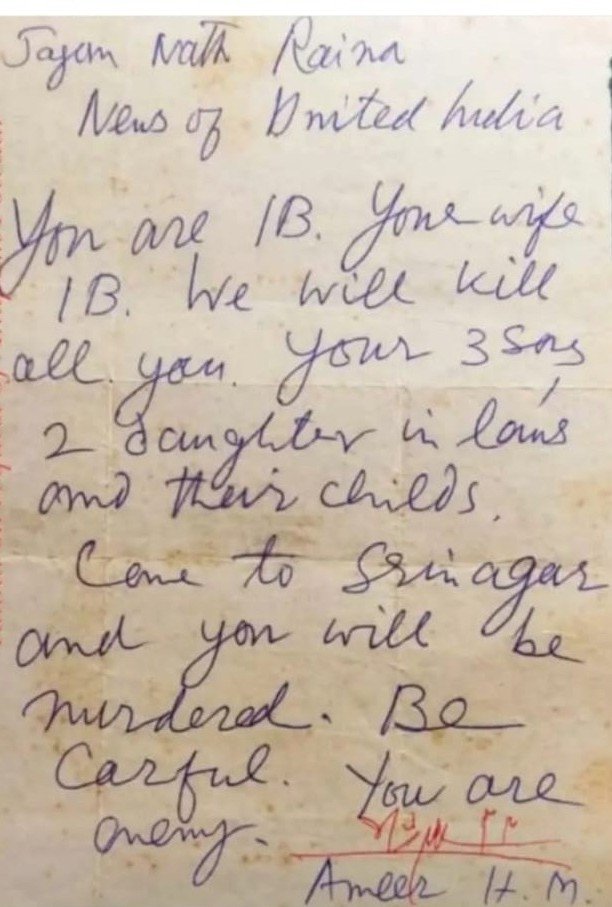 Jagan Nath Raina
News of United India
You are IB. Your wife
IB. We will kill
all you. Your 3 Sons,
2 daughter in laws
and their childs.
Come to Srinagar
and you will be
murdered. Be
Carful. You are
enemy.
Ameer H. M.